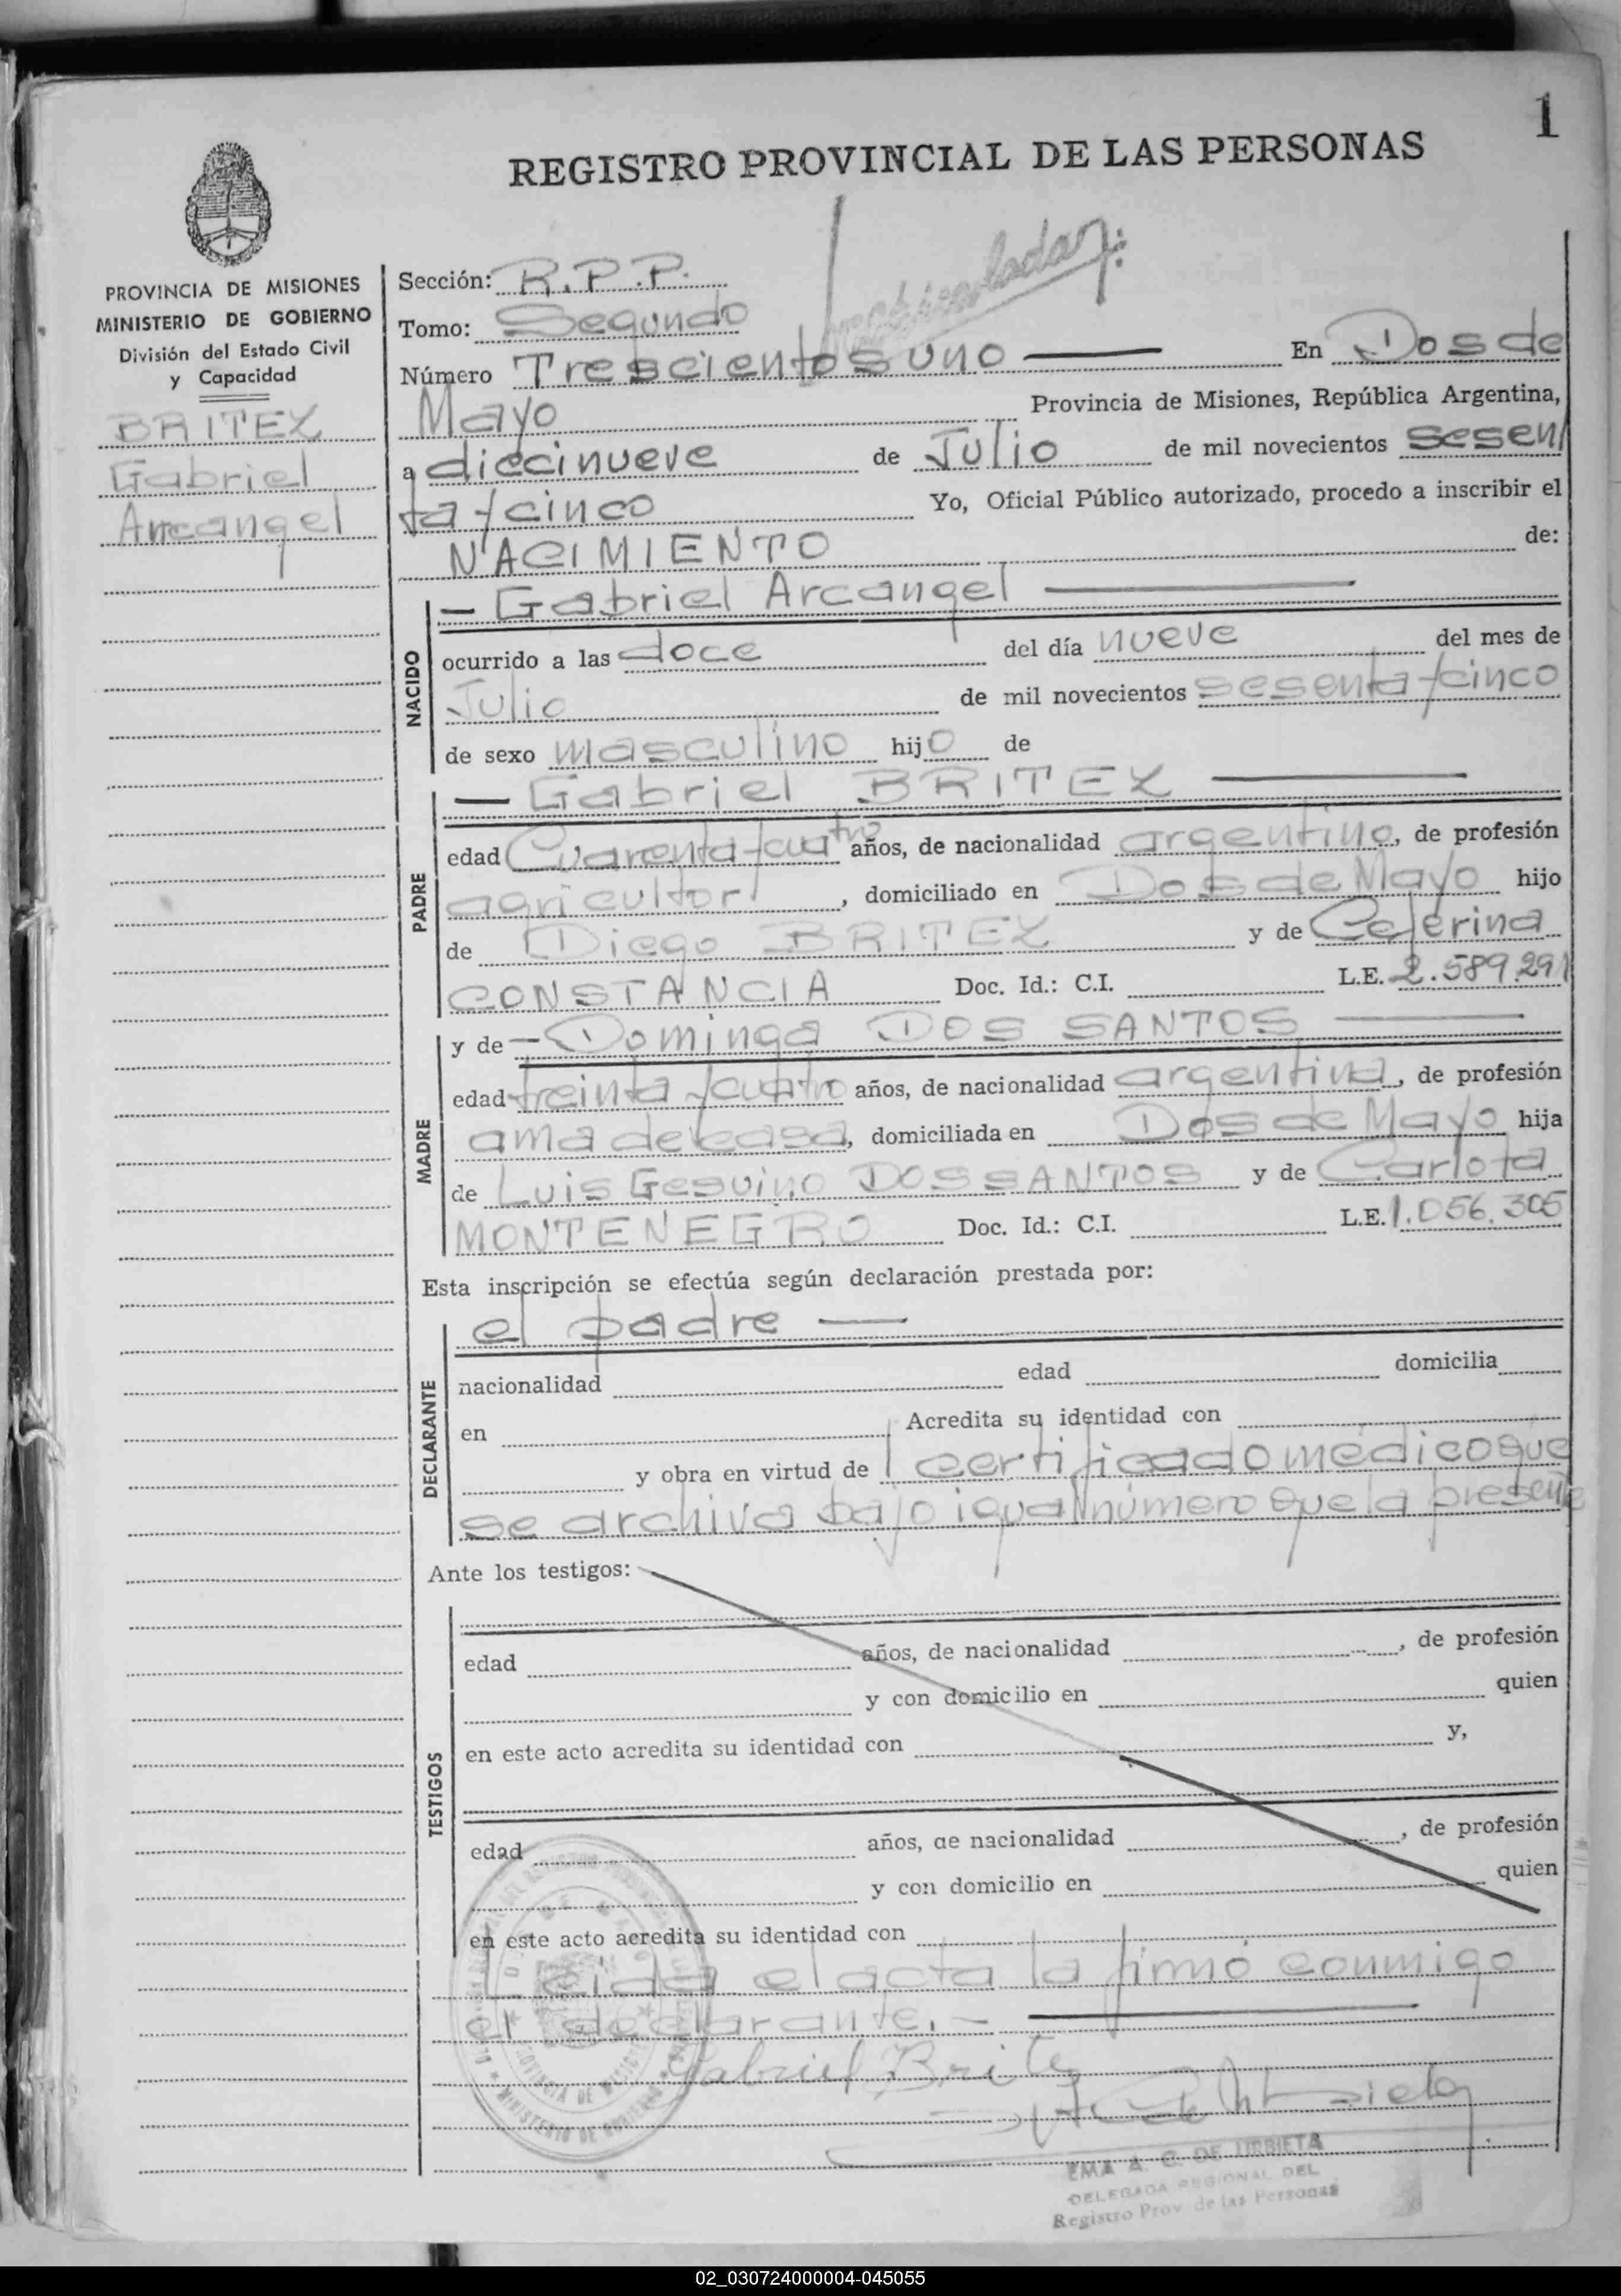 1
REGISTRO PROVINCIAL DE LAS PERSONAS
PROVINCIA DE MISIONES
MINISTERIO DE GOBIERNO
División del Estado Civil
y Capacidad
BRITEZ
Gabriel
Arcangel
Sección: R.P.P.
Tomo: Segundo
Número Trescientos uno En Dos de
Mayo Provincia de Misiones, República Argentina,
a diecinueve de Julio de mil novecientos sesen
ta y cinco Yo, Oficial Público autorizado, procedo a inscribir el
NACIMIENTO de:
NACIDO
- Gabriel Arcangel
ocurrido a las doce del día nueve del mes de
Julio de mil novecientos sesenta y cinco
de sexo masculino hijo de
PADRE
- Gabriel BRITEZ
edad Cuarenta y cuatro años, de nacionalidad argentino, de profesión
agricultor, domiciliado en Dos de Mayo hijo
de Diego BRITEZ y de Ceferina
CONSTANCIA Doc. Id.: C.I. L.E. 2.589.291
MADRE
y de - Dominga DOS SANTOS
edad treinta y cuatro años, de nacionalidad argentina, de profesión
ama de casa, domiciliada en Dos de Mayo hija
de Luis Geguino DOS SANTOS y de Carlota
MONTENEGRO Doc. Id.: C.I. L.E. 1.056.305
Esta inscripción se efectúa según declaración prestada por:
DECLARANTE
el padre
nacionalidad edad domicilia
en Acredita su identidad con
y obra en virtud de certificado médico que
se archiva bajo igual número que la presente
Ante los testigos:
TESTIGOS
edad años, de nacionalidad , de profesión
y con domicilio en quien
en este acto acredita su identidad con y,
edad años, de nacionalidad , de profesión
y con domicilio en quien
en este acto acredita su identidad con
Leida el acta la firmó conmigo
el declarante.-
Gabriel Britez
EMA A. C. DE URBIETA
DELEGADA REGIONAL DEL
Registro Prov. de las Personas
02_030724000004-045055